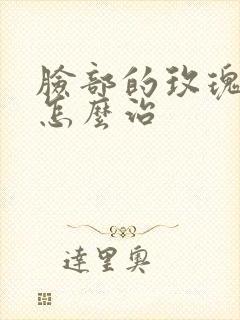 臉部的玫瑰
怎麼治
達里奧